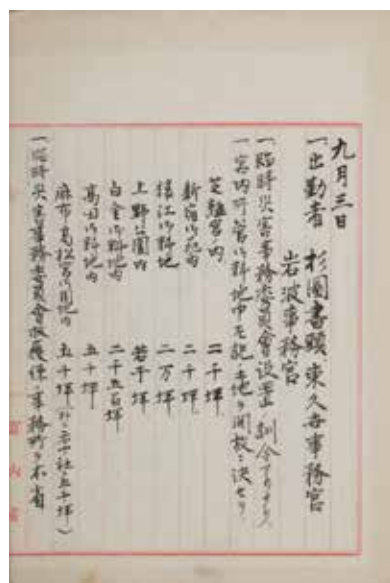 九月三日
一出勤者 杉圖書頭 東久世事務官
岩波事務官
一臨時災害事務委員會設置ノ訓令アリタリ
一宮内所管御料地中左記土地ノ開放ニ決セリ
芝離宮内 二千坪
新宿御苑内 二千坪
猿江御料地 二万坪
上野公園内 若干坪
白金御料地内 二千五百坪
高田御料地内 五千坪
麻布高松宮御用地内 五千坪
一臨時災害事務委員會救護係ノ事務所ヲ本省